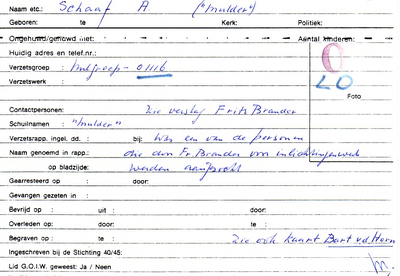 Naam etc.: Schaaf A. ("Mulder")
Geboren: te Kerk: Politiek:
Ongehuwd/gehuwd met: Aantal kinderen:
Huidig adres en telef.nr.:
Verzetsgroep : Hulpgroep - O1116
Verzetswerk :
O
LO
Foto
Contactpersonen: Zie verslag Frits Brander
Schuilnamen : "Mulder"
Verzetsrapp. ingel. dd. : bij: Was een van de personen
Naam genoemd in rapp.: die door Fr. Brander voor inlichtingenwerk
op bladzijde: werden aangezocht
Gearresteerd op : door:
Gevangen gezeten in :
Bevrijd op : uit : door:
Overleden op: te: door:
Begraven op : te : Zie ook kaart Bart v.d. Horn
Ingeschreven bij de Stichting 40/45:
Lid G.O.I.W. geweest: Ja / Neen m.